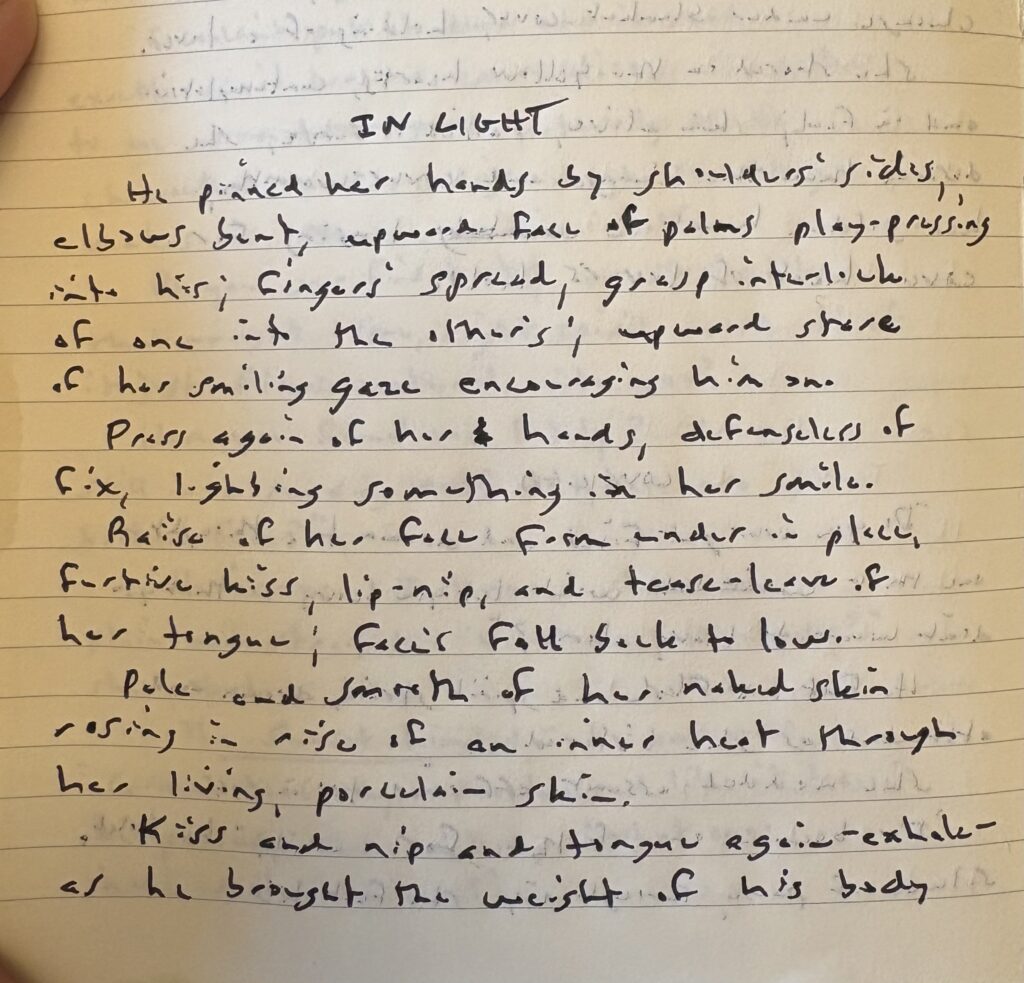 IN LIGHT
He pinned her hands by shoulders' sides,
elbows bent, upward face of palms play-pressing
into his; fingers' spread, grasp inter-lock
of one into the other's; upward stare
of her smiling gaze encouraging him on.
Press again of her hands, defenseless of
fix, lighting something in her smile.
Raise of her face from under in place,
furtive kiss, lip-nip, and tease-leave of
her tongue; face's fall back to low.
Pale and smooth of her naked skin
rosing in rise of an inner heat through
her living, porcelain skin.
Kiss and nip and tongue again-exhale-
as he brought the weight of his body